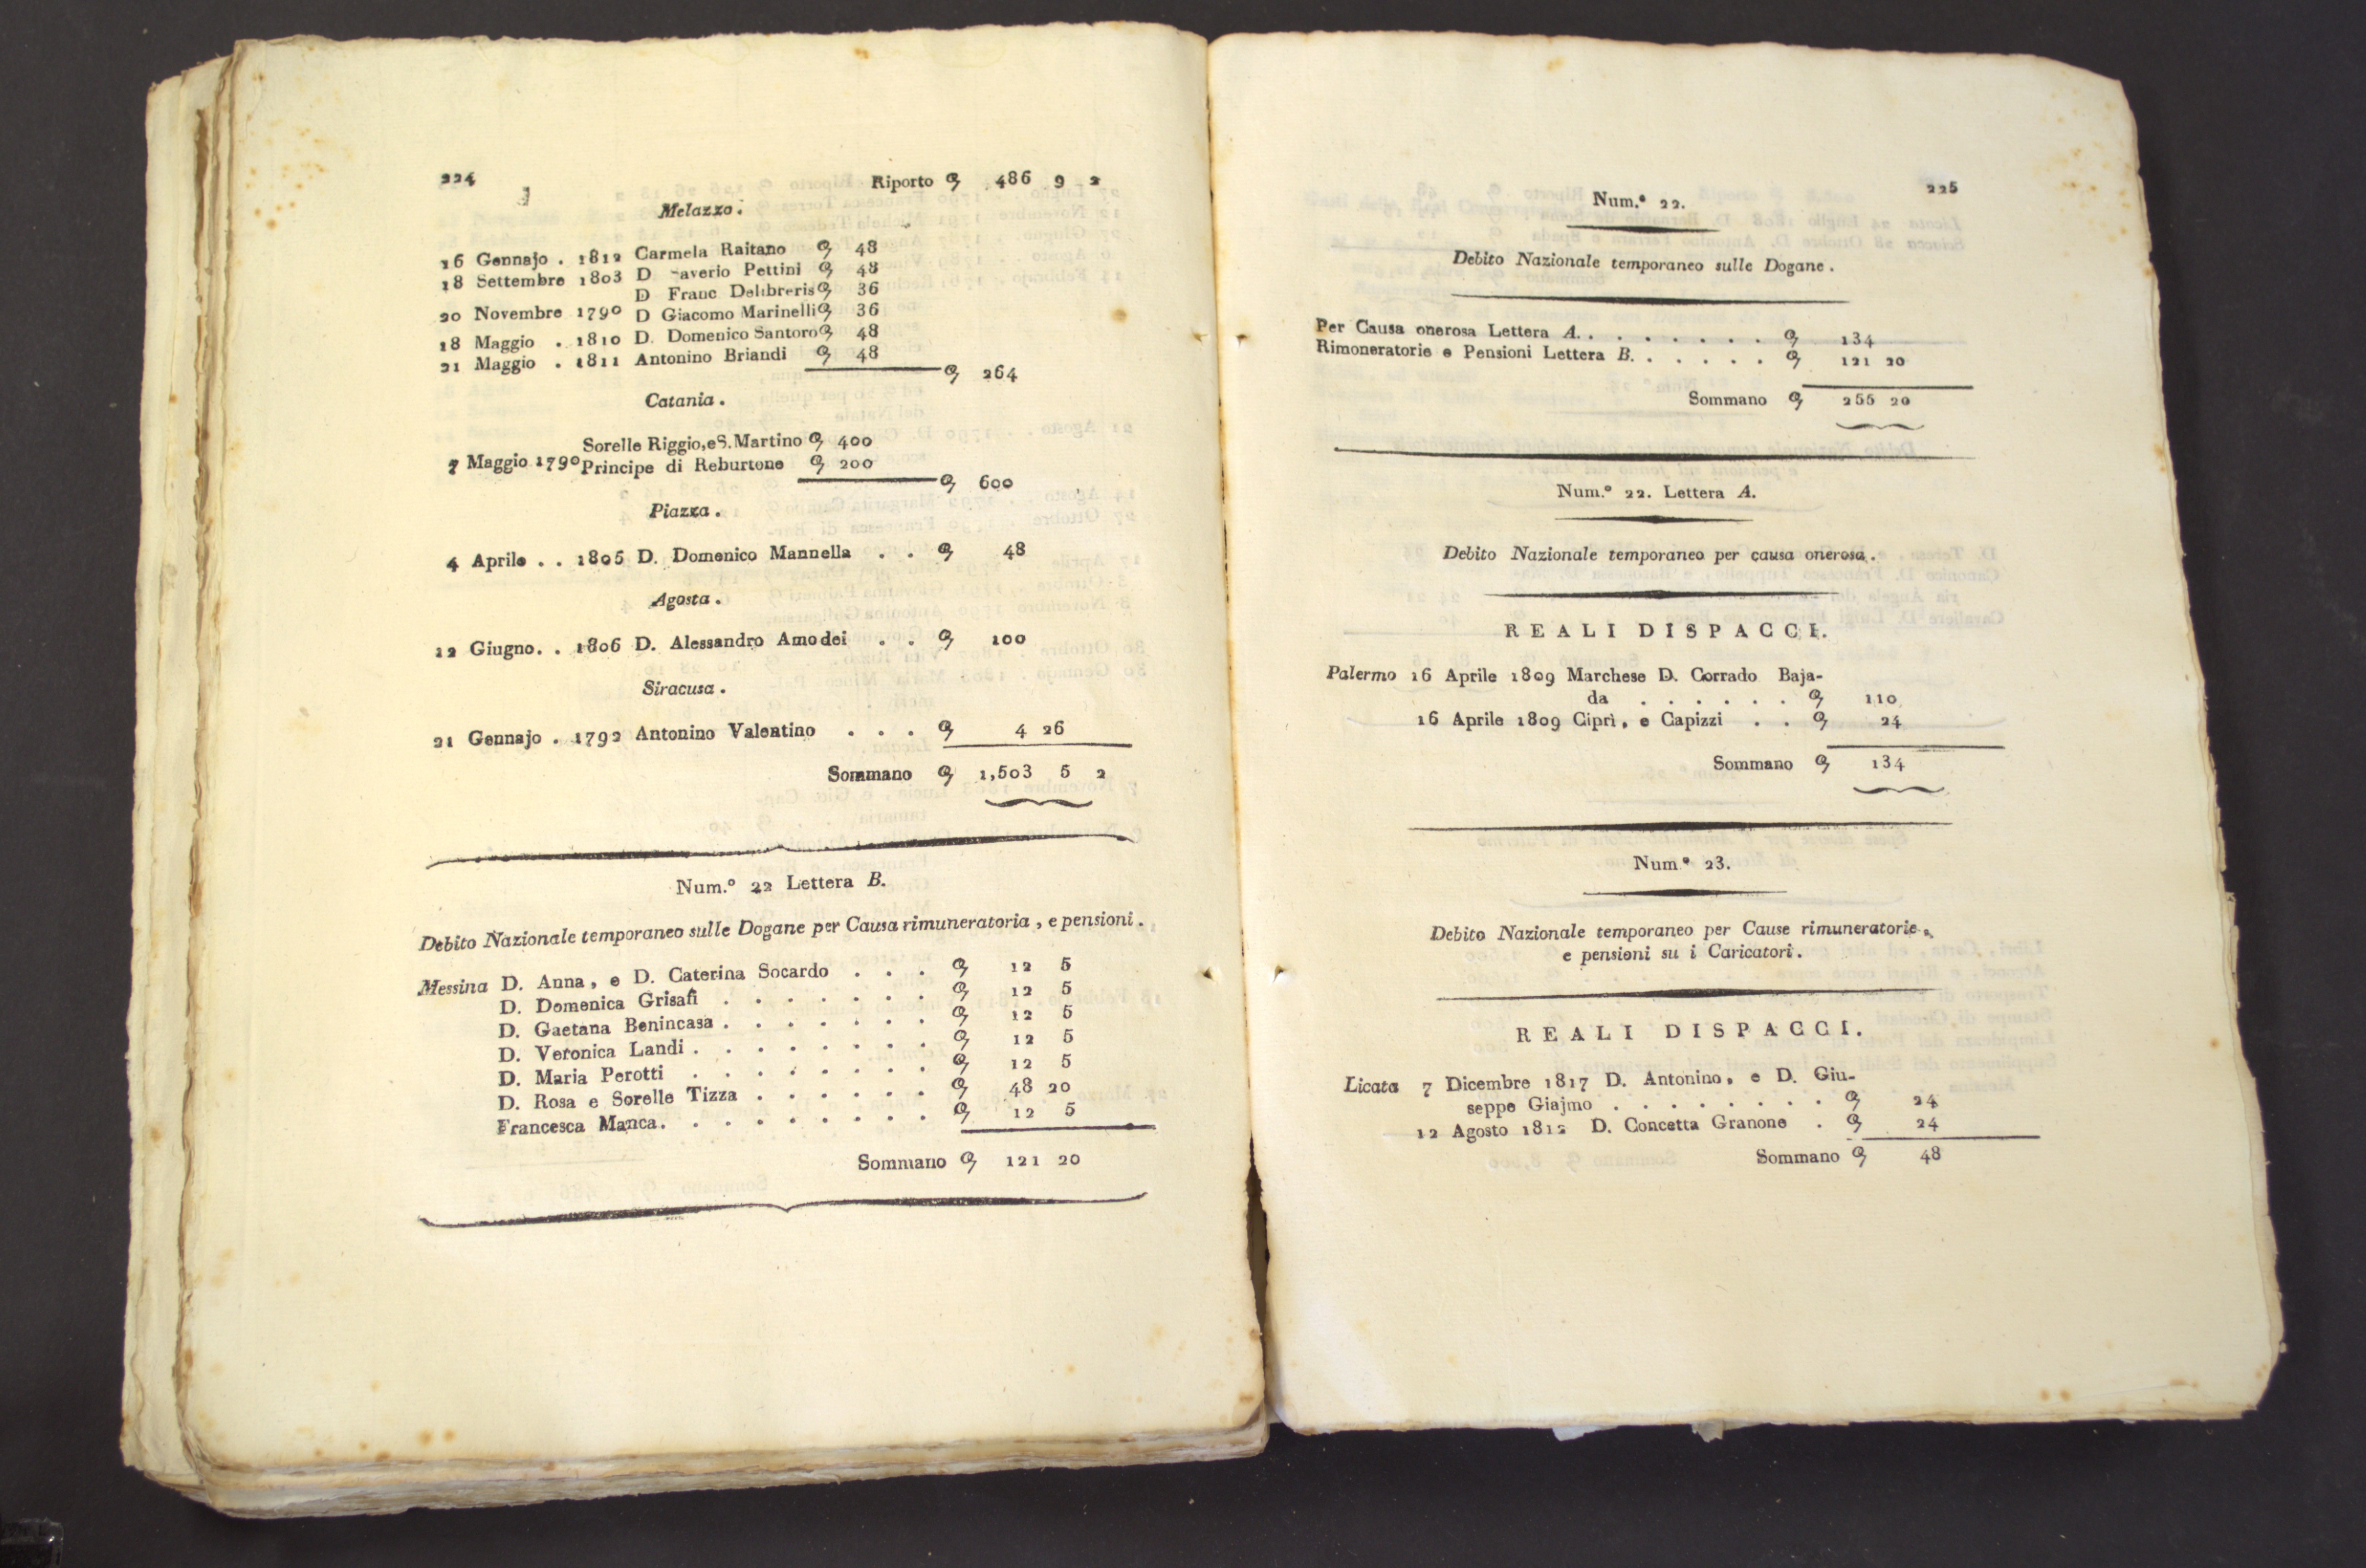 224
Riporto 486 9 2
Melazzo.
16 Gennajo . 1812 Carmela Raitano 48
18 Settembre 1803 D averio Pettini 48
D Franc Delibreris 36
20 Novembre 1790 D Giacomo Marinelli 36
18 Maggio . 1810 D. Domenico Santoro 48
21 Maggio . 1811 Antonino Briandi 48
264
Catania.
Sorelle Riggio, e S. Martino 400
7 Maggio 1790 Principe di Reburtone 200
600
Piazza.
4 Aprile . . 1805 D. Domenico Mannella . . 48
Agosta.
12 Giugno. . 1806 D. Alessandro Amodei . . 100
Siracusa.
21 Gennajo . 1792 Antonino Valentino . . . 4 26
Sommano 1,503 5 2
Num.° 22 Lettera B.
Debito Nazionale temporaneo sulle Dogane per Causa rimuneratoria, e pensioni.
Messina D. Anna, e D. Caterina Socardo . . . 12 5
D. Domenica Grisafi . . . . . . . 12 5
D. Gaetana Benincasa . . . . . . . 12 5
D. Veronica Landi . . . . . . . . 12 5
D. Maria Perotti . . . . . . . . 12 5
D. Rosa e Sorelle Tizza . . . . . . 48 20
Francesca Manca. . . . . . . . . 12 5
Sommano 121 20
225
Num.° 22.
Debito Nazionale temporaneo sulle Dogane.
Per Causa onerosa Lettera A. . . . . . . . 134
Rimoneratorie e Pensioni Lettera B. . . . . . 121 20
Sommano 255 20
Num.° 22. Lettera A.
Debito Nazionale temporaneo per causa onerosa.
REALI DISPACCI.
Palermo 16 Aprile 1809 Marchese D. Corrado Baja-
da . . . . . . 110
16 Aprile 1809 Ciprì, e Capizzi . . 24
Sommano 134
Num° 23.
Debito Nazionale temporaneo per Cause rimuneratorie,
e pensioni su i Caricatori.
REALI DISPACCI.
Licata 7 Dicembre 1817 D. Antonino, e D. Giu-
seppe Giajmo . . . . . . . . 24
12 Agosto 1812 D. Concetta Granone . 24
Sommano 48